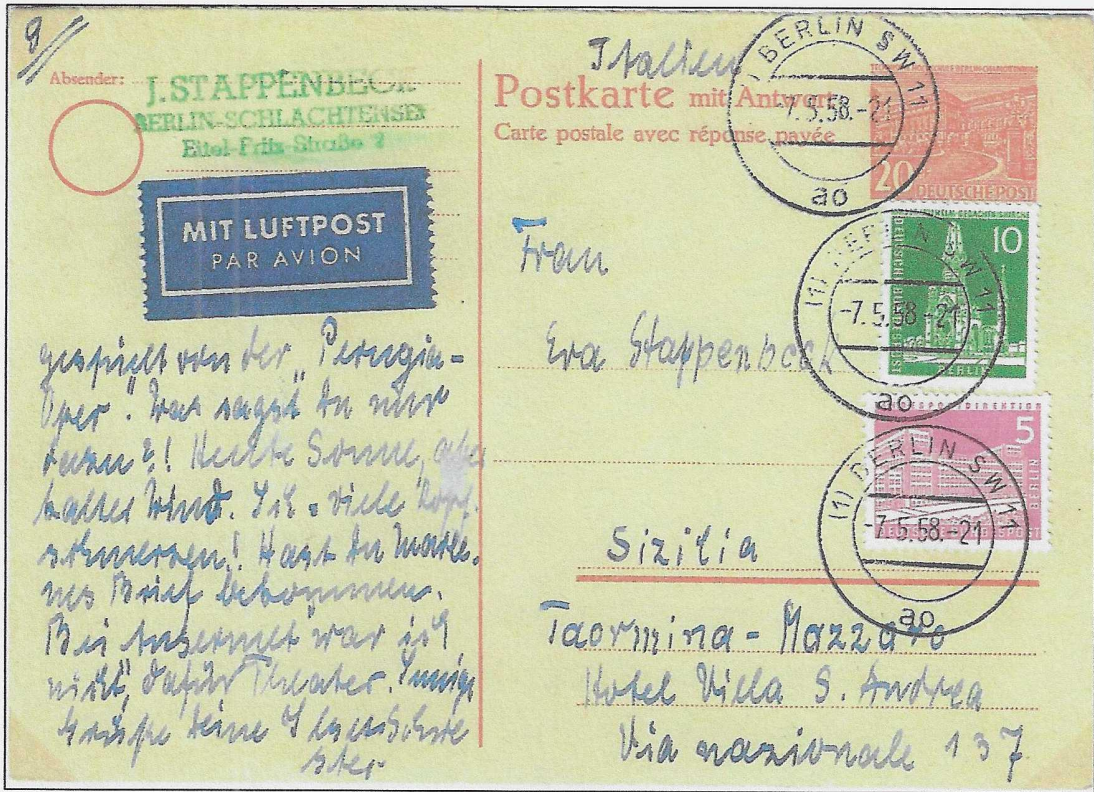 8
Absender:
J. STAPPENBECK
BERLIN-SCHLACHTENSEE
Eitel-Fritz-Straße
MIT LUFTPOST
PAR AVION
gespielt von der "Perugia-
Oper". Was sagst du nur
dazu?! Heute Sonne, aber
kalter Wind. Ich - viele Kopf-
schmerzen! Hast du Marle-
nes Brief bekommen.
Bei Ansermet war ich
nicht, dafür Theater. Innige
Grüße deine Schwe
ster
Italien
Postkarte mit Antwort
Carte postale avec réponse payée
20
DEUTSCHE POST
BERLIN SW 11
-7.5.58.-21
ao
Frau
Eva Stappenbeck
10
BERLIN
(1) BERLIN SW 11
-7.5.58.-21
ao
5
BERLIN
(1) BERLIN SW 11
-7.5.58.-21
ao
Sizilia
Taormina - Mazzaro
Hotel Villa S. Andrea
Via nazionale 137